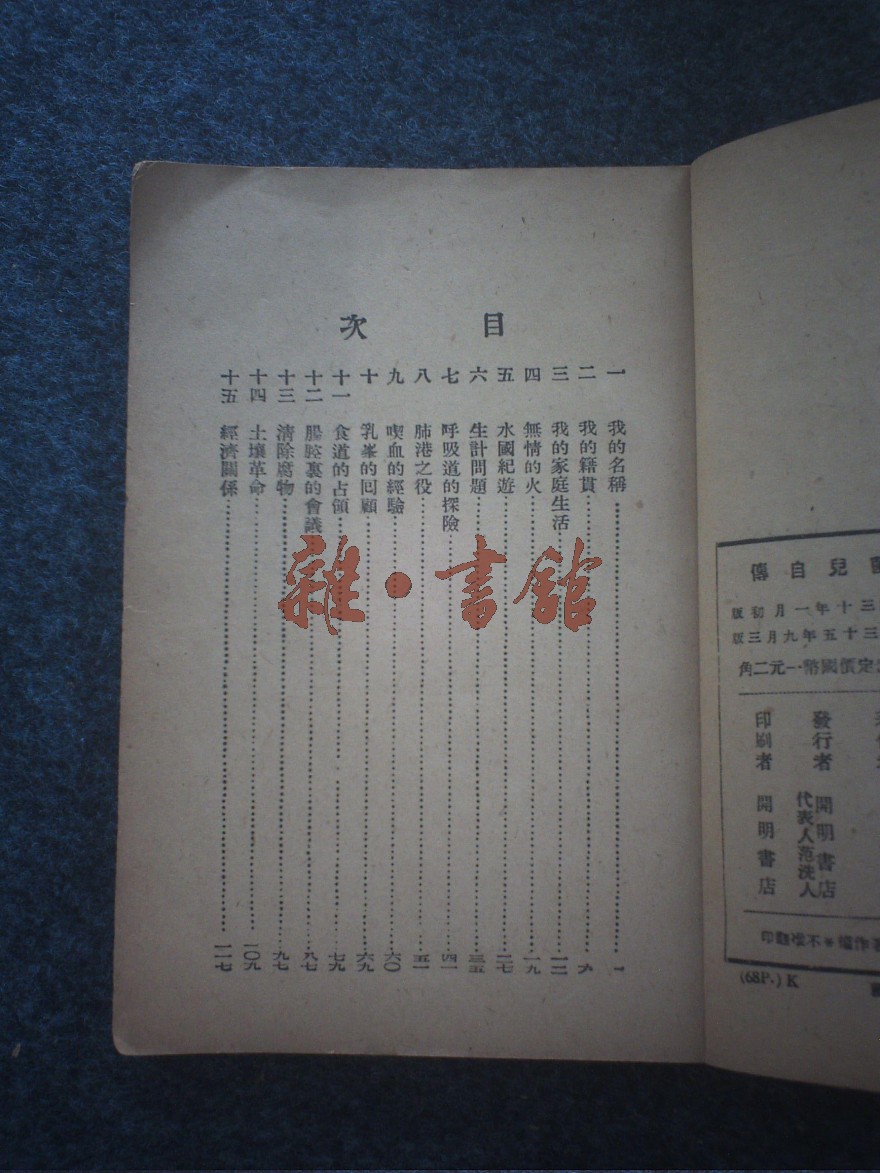 目次
一 我的名稱 一
二 我的籍貫 六
三 我的家庭生活 一二
四 無情的火 一九
五 水國紀遊 二七
六 生計問題 三五
七 呼吸道的探險 四一
八 肺港之役 五一
九 喫血的經驗 六〇
十 乳峯的回顧 六九
十一 食道的占領 七九
十二 腸腔裏的會議 八七
十三 清除腐物 九七
十四 土壤革命 一〇九
十五 經濟關係 一一七
雜·書館
兒自傳
三十年一月初版
三十五年九月三版
定價國幣一元二角
發行者 開明書店
代表人范洗人
印刷者 開明書店
作權*不准翻印
(68P.) K